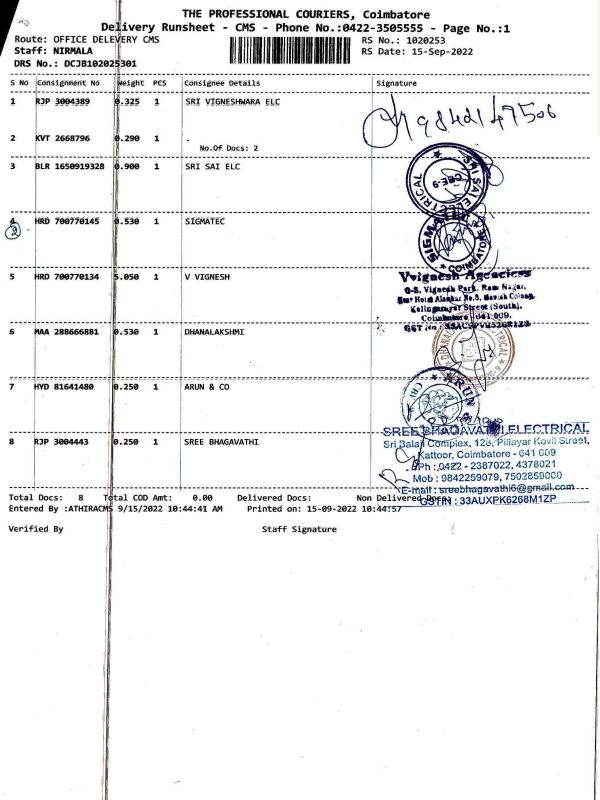 THE PROFESSIONAL COURIERS, Coimbatore
Delivery Runsheet - CMS - Phone No.:0422-3505555 - Page No.:1
Route: OFFICE DELEVERY CMS
RS No.: 1020253
Staff: NIRMALA
RS Date: 15-Sep-2022
DRS No.: DCJB102025301
S NO Consignment No Weight PCS Consignee Details Signature
1 RJP 3004389 0.325 1 SRI VIGNESHWARA ELC
9842147506
2 KVT 2668796 0.290 1 .
No.Of Docs: 2
3 BLR 1650919328 0.900 1 SRI SAI ELC
SRI SAI ELECTRICAL
CBE-9
4 HRD 700770145 0.530 1 SIGMATEC
SIGMATEC
COIMBATORE
5 HRD 700770134 5.050 1 V VIGNESH
Vvignesh Agenciess
0-8, Vignesh Park, Ram Nagar,
Kalingarayar Street (South),
Coimbatore - 641 009.
6 MAA 288666881 0.530 1 DHANALAKSHMI
7 HYD 81641480 0.250 1 ARUN & CO
ARUN
8 RJP 3004443 0.250 1 SREE BHAGAVATHI
SREE BHAGAVATHI ELECTRICAL
Sri Balaji Complex, 128, Pillayar Kovil Street,
Kattoor, Coimbatore - 641 009
Ph : 0422 - 2387022, 4378021
Mob : 9842259079, 7502859000
E-mail : sreebhagavathi6@gmail.com
GSTIN : 33AUXPK6268M1ZP
Total Docs: 8 Total COD Amt: 0.00 Delivered Docs: Non Delivered Docs:
Entered By :ATHIRACMS 9/15/2022 10:44:41 AM Printed on: 15-09-2022 10:44:57
Verified By Staff Signature